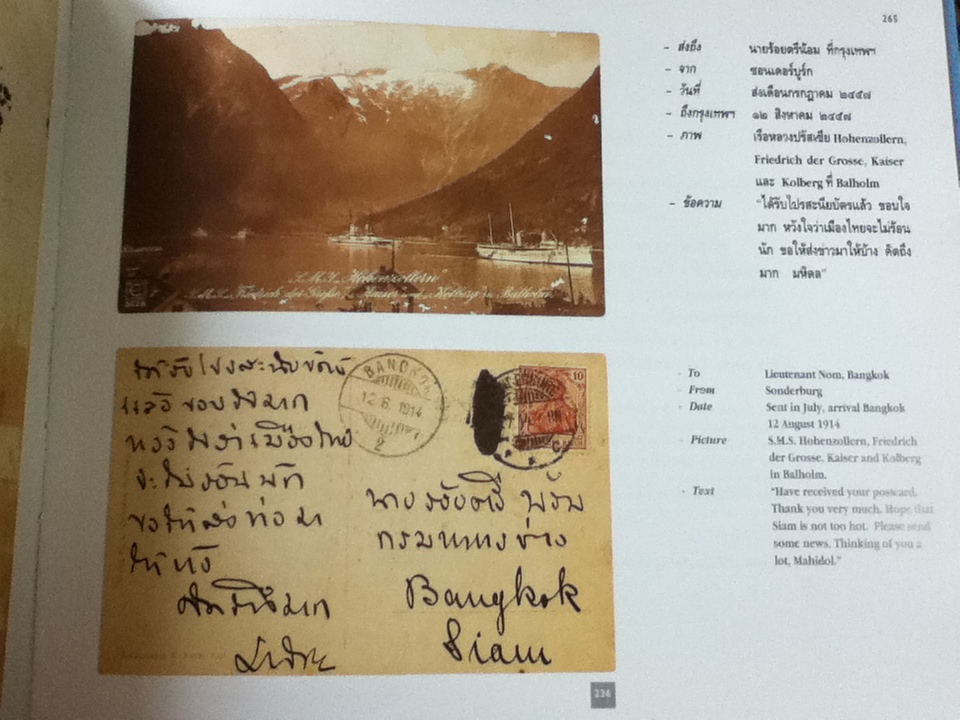 265
S.M.Y. "Hohenzollern"
S.M.S. Friedrich der Große, Kaiser und Kolberg in Balholm
- ส่งถึง นายร้อยตรีน้อม ที่กรุงเทพฯ
- จาก ซอนเดอร์บูร์ก
- วันที่ ส่งเดือนกรกฎาคม ๒๔๕๗
- ถึงกรุงเทพฯ ๑๒ สิงหาคม ๒๔๕๗
- ภาพ เรือหลวงปรัสเซีย Hohenzollern,
Friedrich der Grosse, Kaiser
และ Kolberg ที่ Balholm
- ข้อความ "ได้รับไปรสะนียบัตรแล้ว ขอบใจ
มาก หวังใจว่าเมืองไทยจะไม่ร้อน
นัก ขอให้ส่งข่าวมาให้บ้าง คิดถึง
มาก มหิดล"
BANGKOK
12.8.1914
2
10
แล้ว ขอบใจมาก
หวังใจว่าเมืองไทย
จะไม่ร้อนนัก
คิดถึงมาก
นายร้อยตรี
Bangkok
Siam
- To Lieutenant Nom, Bangkok
- From Sonderburg
- Date Sent in July, arrival Bangkok
12 August 1914
- Picture S.M.S. Hohenzollern, Friedrich
der Grosse, Kaiser and Kolberg
in Balholm.
- Text "Have received your postcard.
Thank you very much. Hope that
Siam is not too hot. Please send
some news. Thinking of you a
lot, Mahidol."
234